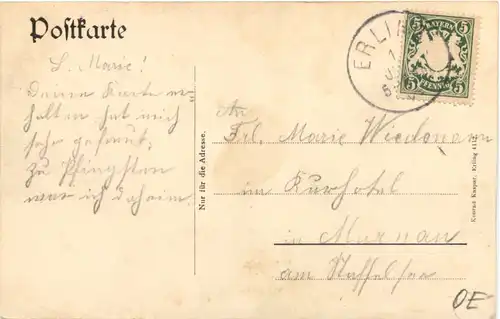 Postkarte
L. Marie!
Deine Karte er-
halten hat mich
sehr gefreut.
Zu Pfingsten
war ich daheim.
Nur für die Adresse.
An
Frl. Marie Wiedemann
im Kurhotel
in Murnau
am Staffelsee
ERLING
BAYERN
5 5
PFENNIG
5 5
Konrad Kaspar, Erling
OE